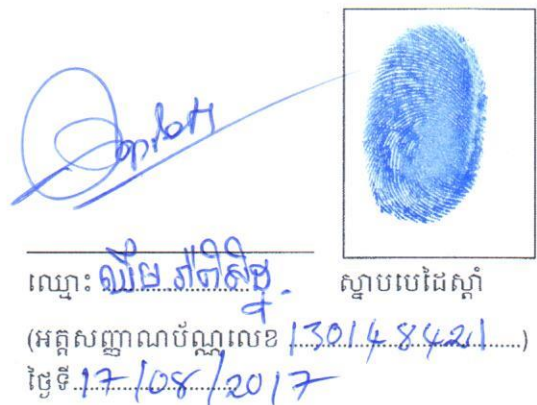 ឈ្មោះ ឈឹម រ៉ាវិសិដ្ឋ
ស្នាបមេដៃស្តាំ
(អត្តសញ្ញាណប័ណ្ណលេខ 130148421)
ថ្ងៃទី 17/08/2017